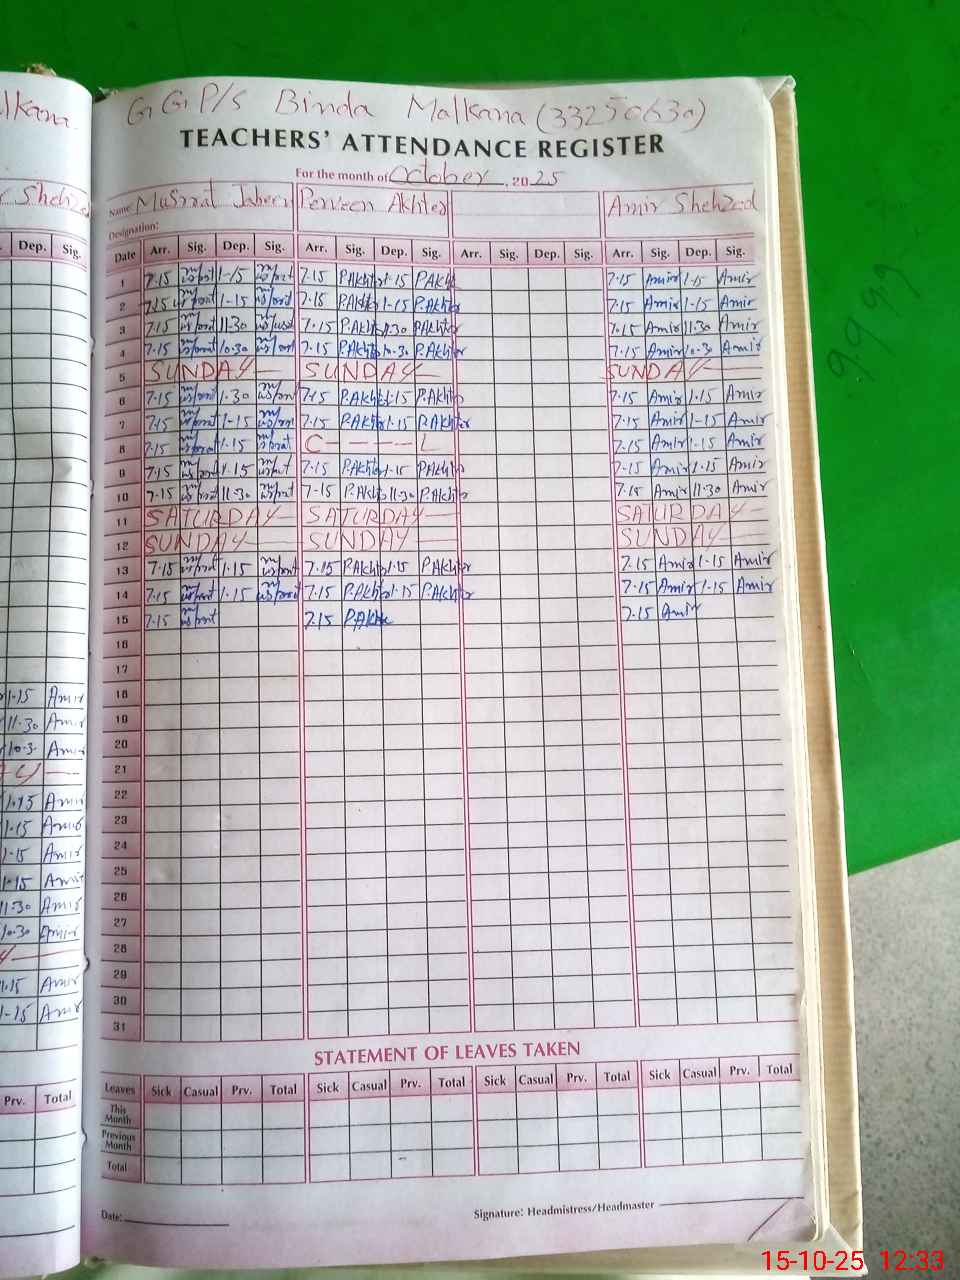 GGP/S Binda Malkana (33250630)
TEACHERS' ATTENDANCE REGISTER
For the month of October, 2025
Name: Musrrat Jabeen Perveen Akhter Amir Shehzad
Designation:
Date Arr. Sig. Dep. Sig. Arr. Sig. Dep. Sig. Arr. Sig. Dep. Sig. Arr. Sig. Dep. Sig.
1 7-15 1-15 7-15 P.Akhter 1-15 P.Akhter 7-15 Amir 1-15 Amir
2 7-15 1-15 7-15 P.Akhter 1-15 P.Akhter 7-15 Amir 1-15 Amir
3 7-15 11-30 7-15 P.Akhter 11-30 P.Akhter 7-15 Amir 11-30 Amir
4 7-15 10-30 7-15 P.Akhter 10-30 P.Akhter 7-15 Amir 10-30 Amir
5 SUNDAY SUNDAY SUNDAY
6 7-15 1-30 7-15 P.Akhter 1-15 P.Akhter 7-15 Amir 1-15 Amir
7 7-15 1-15 7-15 P.Akhter 1-15 P.Akhter 7-15 Amir 1-15 Amir
8 7-15 1-15 C - - - - L 7-15 Amir 1-15 Amir
9 7-15 1-15 7-15 P.Akhter 1-15 P.Akhter 7-15 Amir 1-15 Amir
10 7-15 11-30 7-15 P.Akhter 11-30 P.Akhter 7-15 Amir 11-30 Amir
11 SATURDAY SATURDAY SATURDAY
12 SUNDAY SUNDAY SUNDAY
13 7-15 1-15 7-15 P.Akhter 1-15 P.Akhter 7-15 Amir 1-15 Amir
14 7-15 1-15 7-15 P.Akhter 1-15 P.Akhter 7-15 Amir 1-15 Amir
15 7-15 7-15 P.Akhter 7-15 Amir
16
17
18
19
20
21
22
23
24
25
26
27
28
29
30
31
STATEMENT OF LEAVES TAKEN
Leaves Sick Casual Prv. Total Sick Casual Prv. Total Sick Casual Prv. Total Sick Casual Prv. Total
This Month
Previous Month
Total
Date: Signature: Headmistress/Headmaster
Shehzad
Dep. Sig.
1-15 Amir
11-30 Amir
10-3 Amir
1-15 Amir
1-15 Amir
1-15 Amir
1-15 Amir
11-30 Amir
10-30 Amir
1-15 Amir
1-15 Amir
Prv. Total
15-10-25 12:33